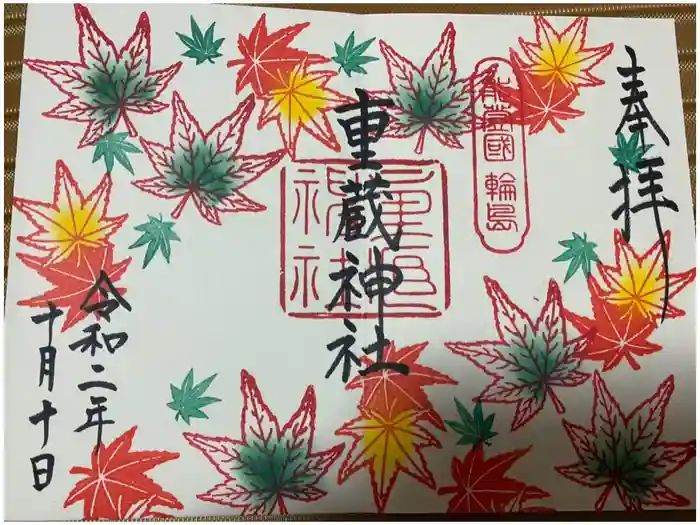 奉拝
能登國輪島
重蔵神社
重蔵神社
令和二年
十月十日